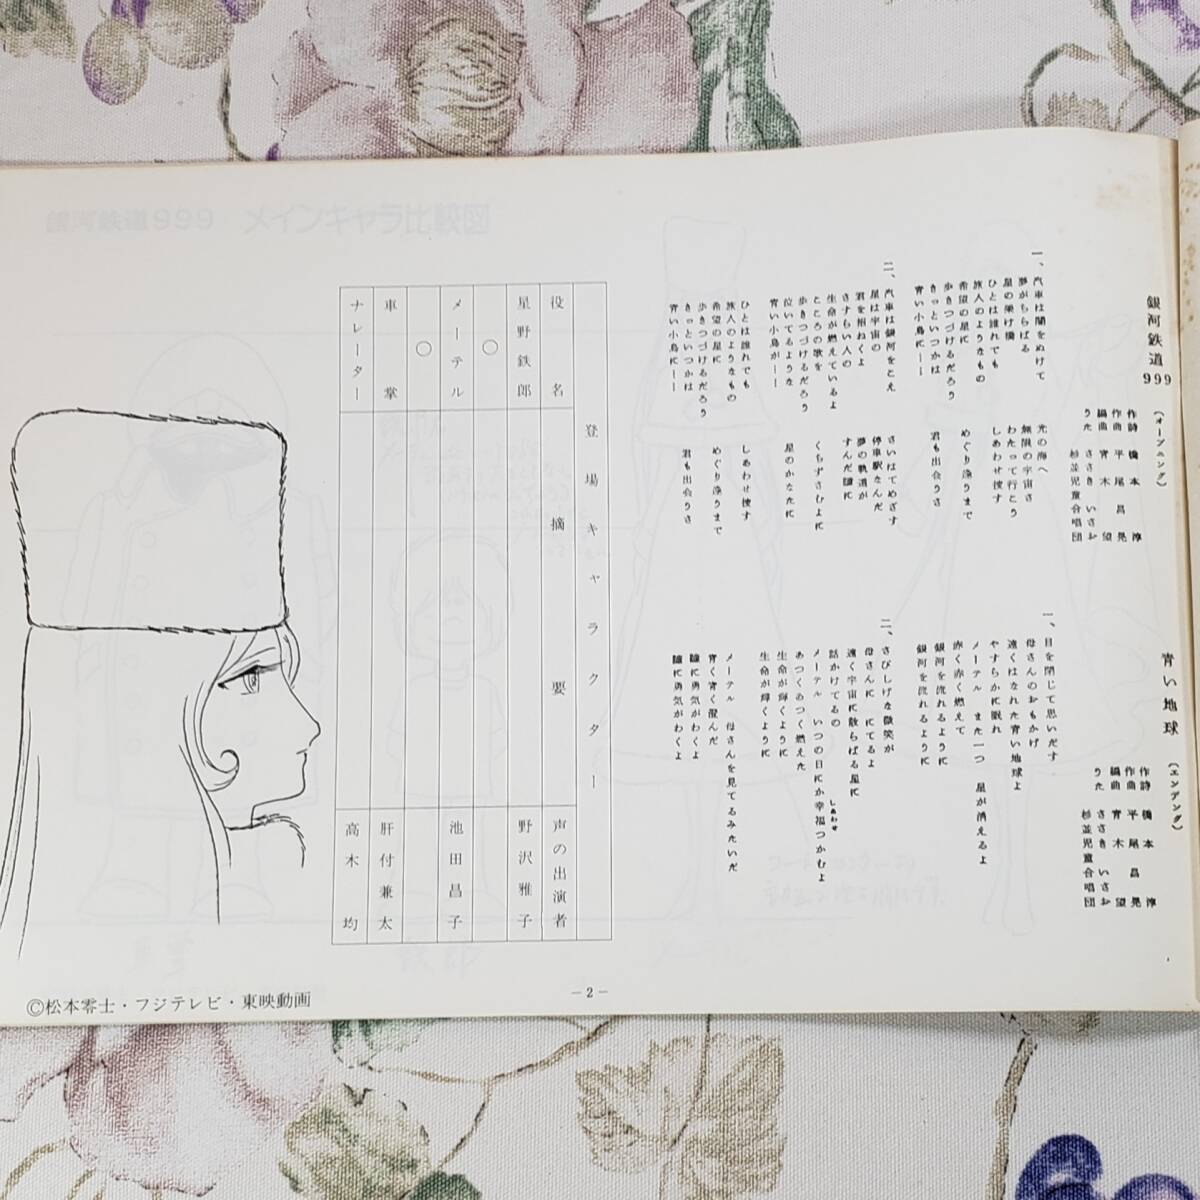 銀河鉄道999
(オープニング)
作詩 橋本淳
作曲 平尾昌晃
編曲 青木望
うた ささきいさお
杉並児童合唱団
一、汽車は闇をぬけて 光の海へ
夢がちらばる 無限の宇宙さ
星の架け橋 わたって行こう
ひとは誰れでも しあわせ捜す
旅人のようなもの
希望の星に めぐり逢うまで
歩きつづけるだろう
きっといつかは 君も出会うさ
青い小鳥にーー
二、汽車は銀河をこえ さいはてめざす
星は宇宙の 停車駅なんだ
君を招ねくよ 夢の軌道が
さすらい人の すんだ瞳に
生命が燃えているよ
こころの歌を くちずさむよに
歩きつづけるだろう
泣いてるような 星のかなたに
青い小鳥がーー
ひとは誰れでも しあわせ捜す
旅人のようなもの
希望の星に めぐり逢うまで
歩きつづけるだろう
きっといつかは 君も出会うさ
青い小鳥にーー
青い地球
(エンデング)
作詩 橋本淳
作曲 平尾昌晃
編曲 青木望
うた ささきいさお
杉並児童合唱団
一、目を閉じて思いだす
母さんのおもかげ
遠くはなれた青い地球よ
やすらかに眠れ
メーテル また一つ 星が消えるよ
赤く赤く燃えて
銀河を流れるように
銀河を流れるように
二、さびしげな微笑が
母さんに にてるよ
遠く宇宙に散らばる星に
話かけてるの
メーテル いつの日にか幸福つかむよ
しあわせ
あつくあつく燃えた
生命が輝くように
生命が輝くように
メーテル 母さんを見てるみたいだ
青く青く澄んだ
瞳に勇気がわくよ
瞳に勇気がわくよ
登場キャラクター
役名 摘要 声の出演者
星野鉄郎 野沢雅子
○
メーテル 池田昌子
○
車掌 肝付兼太
ナレーター 高木均
©松本零士・フジテレビ・東映動画
－2－
銀河鉄道999 メインキャラ比較図